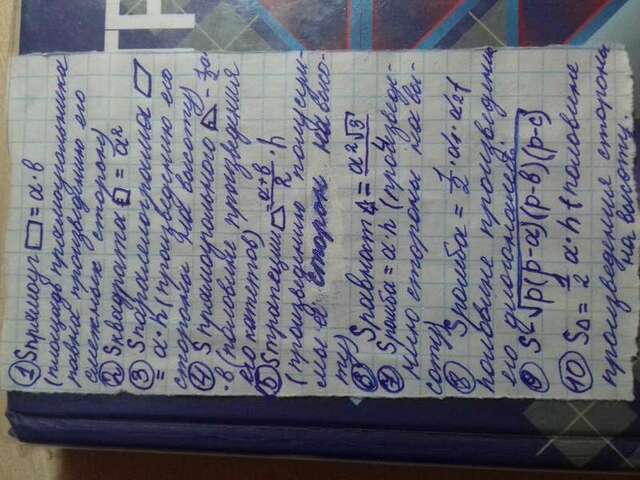 ① Sпрямоуг ▭ = a·в
(площадь прямоугольника
равна произведению его
смежных сторон)
② Sквадрата □ = a²
③ Sпаралелограма ▱
= a·h (произведению его
стороны на высоту)
④ Sпрямоугольного ◺ - ½a·
·в (половине произведения
его катетов)
⑤ Sтрапеции = (a+в)/2 · h
(произведению полусум-
мы сторон на высо-
ту)
⑥ Sравнот △ = a²√3/4
⑦ Sромба = a·h (произведе-
нию стороны на вы-
соту)
⑧ Sромба = 1/2·d₁·d₂(
половине произведению
его диогоналей
⑨ S=√p(p-a)(p-в)(p-c)
⑩ S△ = 1/2 a·h (половине
произведения стороны
на высоту.
ТР